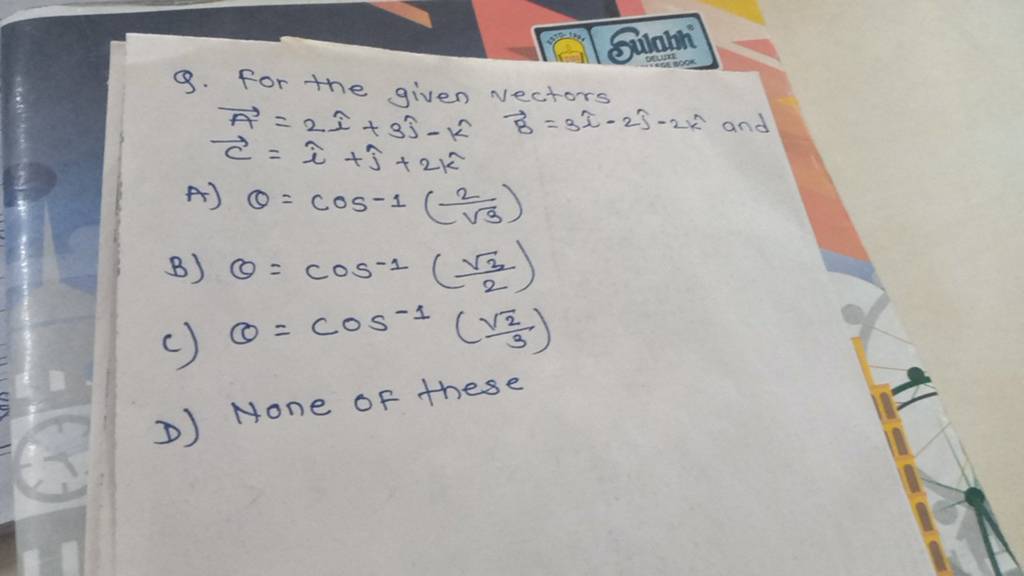 ESTD-1984
Sulabh
DELUXE
Q. For the given vectors
A⃗ = 2î + 3ĵ - k̂ B⃗ = 3î - 2ĵ - 2k̂ and
C⃗ = î + ĵ + 2k̂
A) Θ = cos-1 (2/√3)
B) Θ = cos-1 (√2/2)
C) Θ = cos-1 (√2/3)
D) None of these